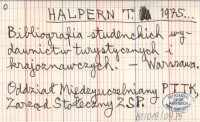 HALPERN T. 1975...
Bibliografia studenckich wy-
dawnictw turystycznych i
krajoznawczych. — Warszawa.
Oddział Międzyuczelniany PTTK,
Zarząd Stołeczny ZSP.